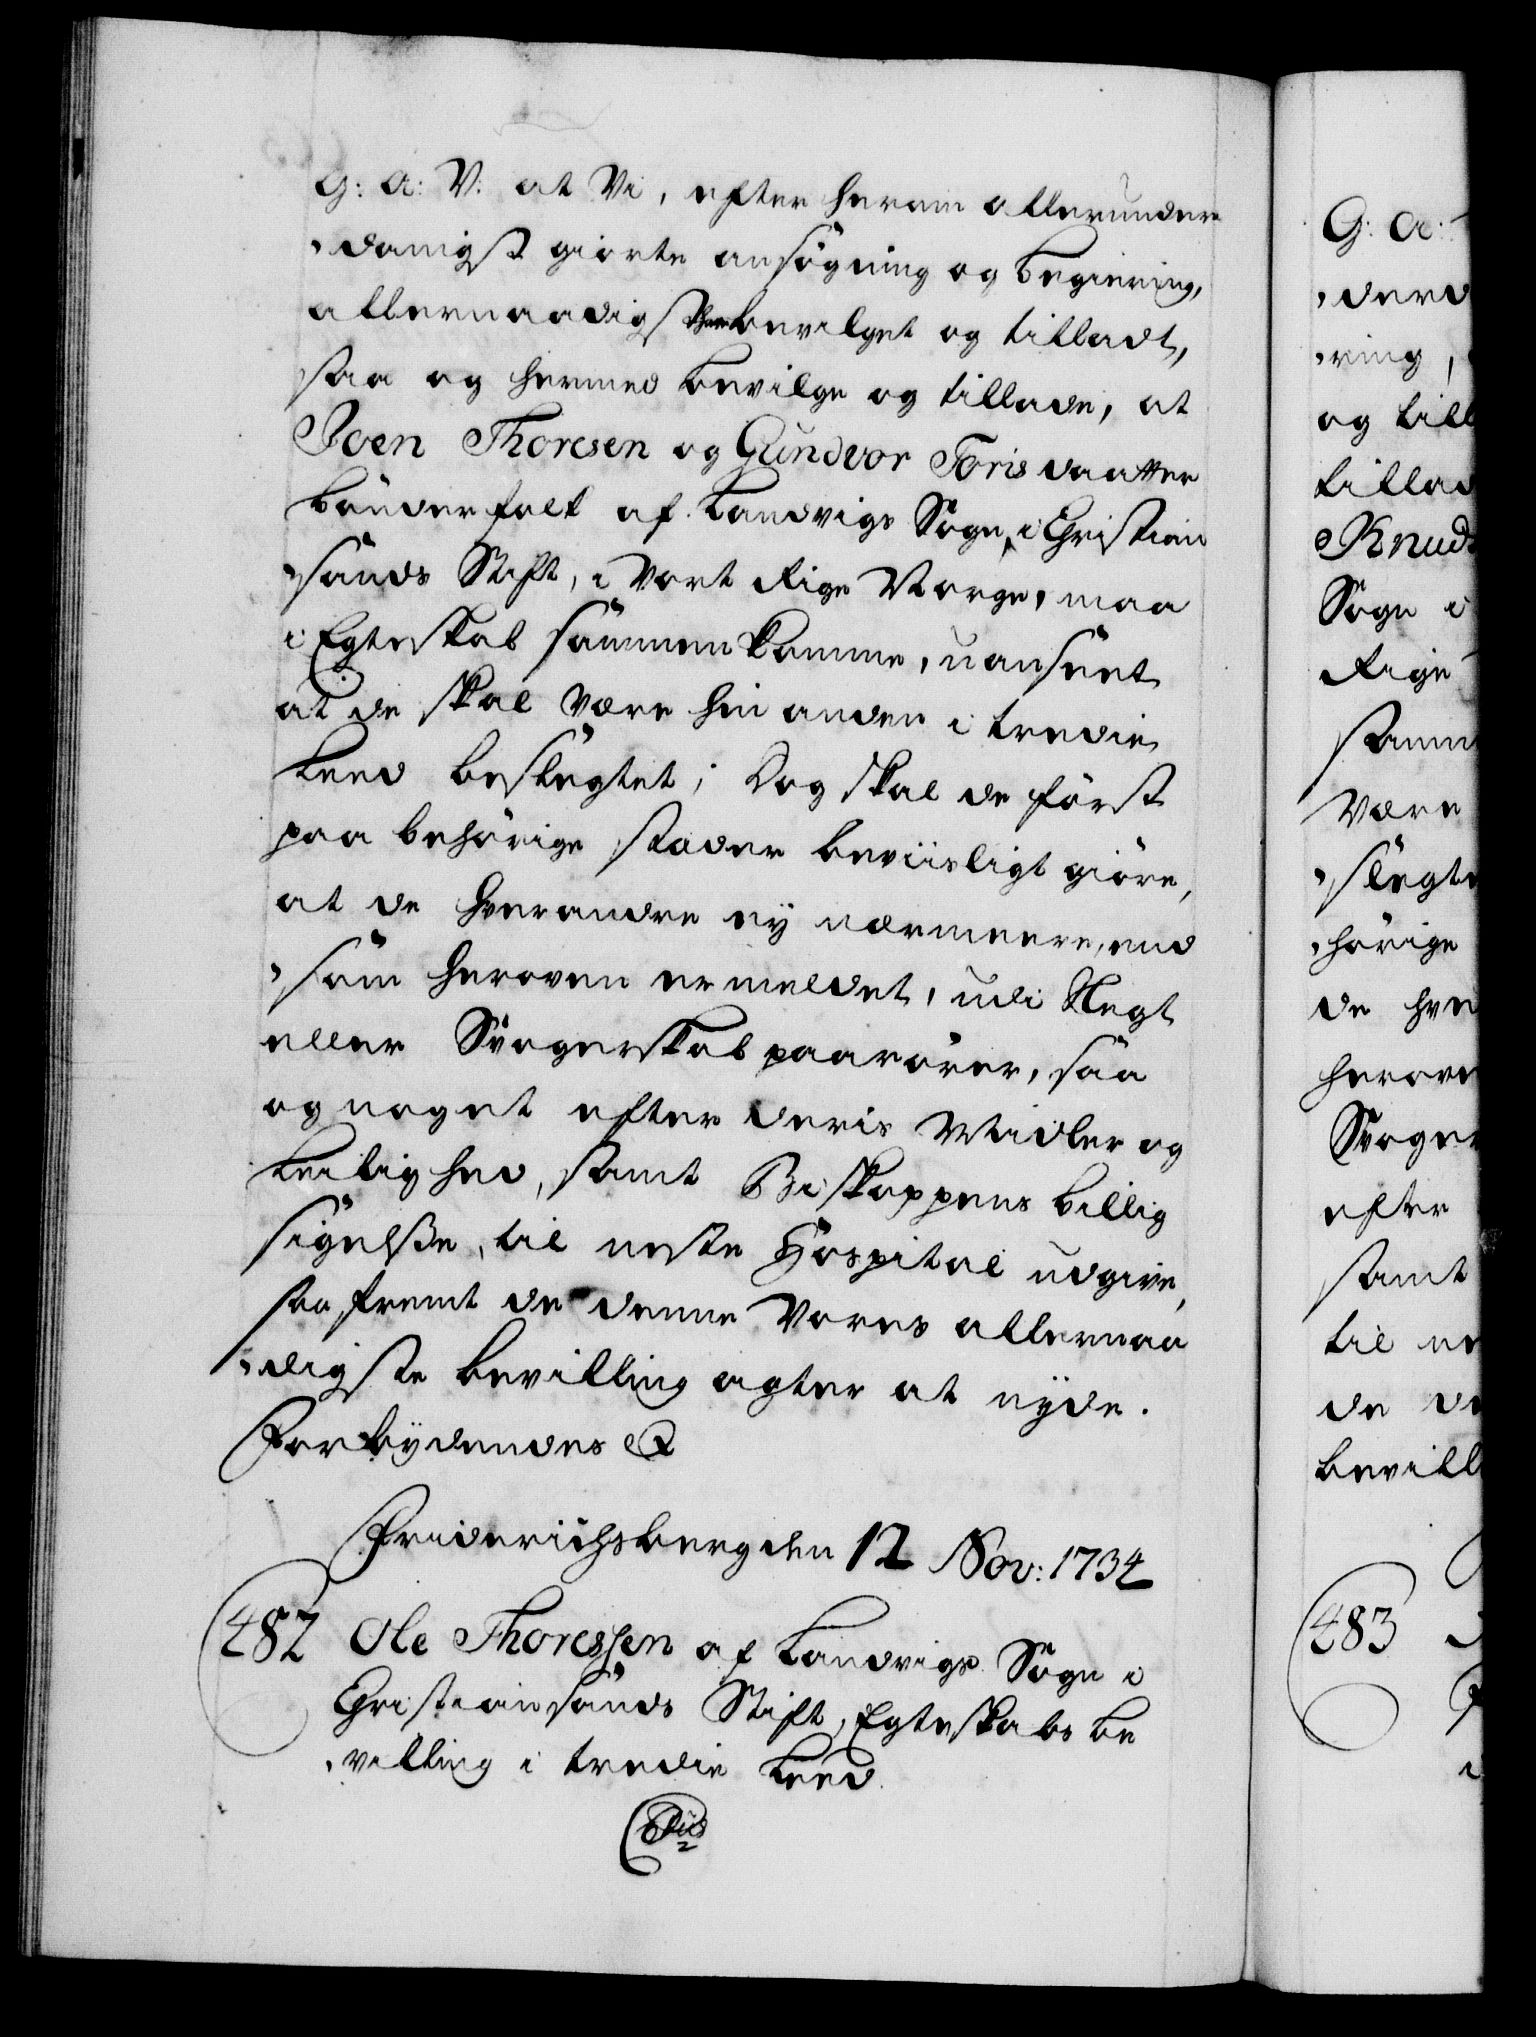 G: A: V: at Vi, efter herom allerunder
danigst giorte ansögning og begiering,
allernaadigst bevilget og tilladt,
saa og hermed bevilge og tillade, at
Joen Thoresen og Gundvor Toris daatter
bönderfolk af Landvigs Sogn, i Christian
sands Stift, i Vort Rige Norge, maa
i Egteskab sammenkomme, uanseet
at de skal være hin anden i tredie
Leed beslegtet; Dog skal de först
paa behörige stæder beviisligt giöre,
at de hverandre ey nærmere, end
som heroven er meldet, udi Slegt
eller Svogerskab paarörer, saa
og noget efter deris Midler og
Leilighed, samt Biskoppens billig
sigelse, til neste Hospital udgive,
saafremt de denne Vores allernaa
digste bevilling agter at nyde.
Forbydendes &
Friderichsberg den 12 Nov: 1734
482 Ole Thoressen af Landvigs Sogn i
Christiansands Stift, Egteskabs be
villing i tredie Leed.
G: A:
derd
ring,
og till
tillad
Knud
Sogn i
Rige
samm
være
slegte
hörige
de hve
herove
Svoger
efter
samt
til ne
de de
bevill
483